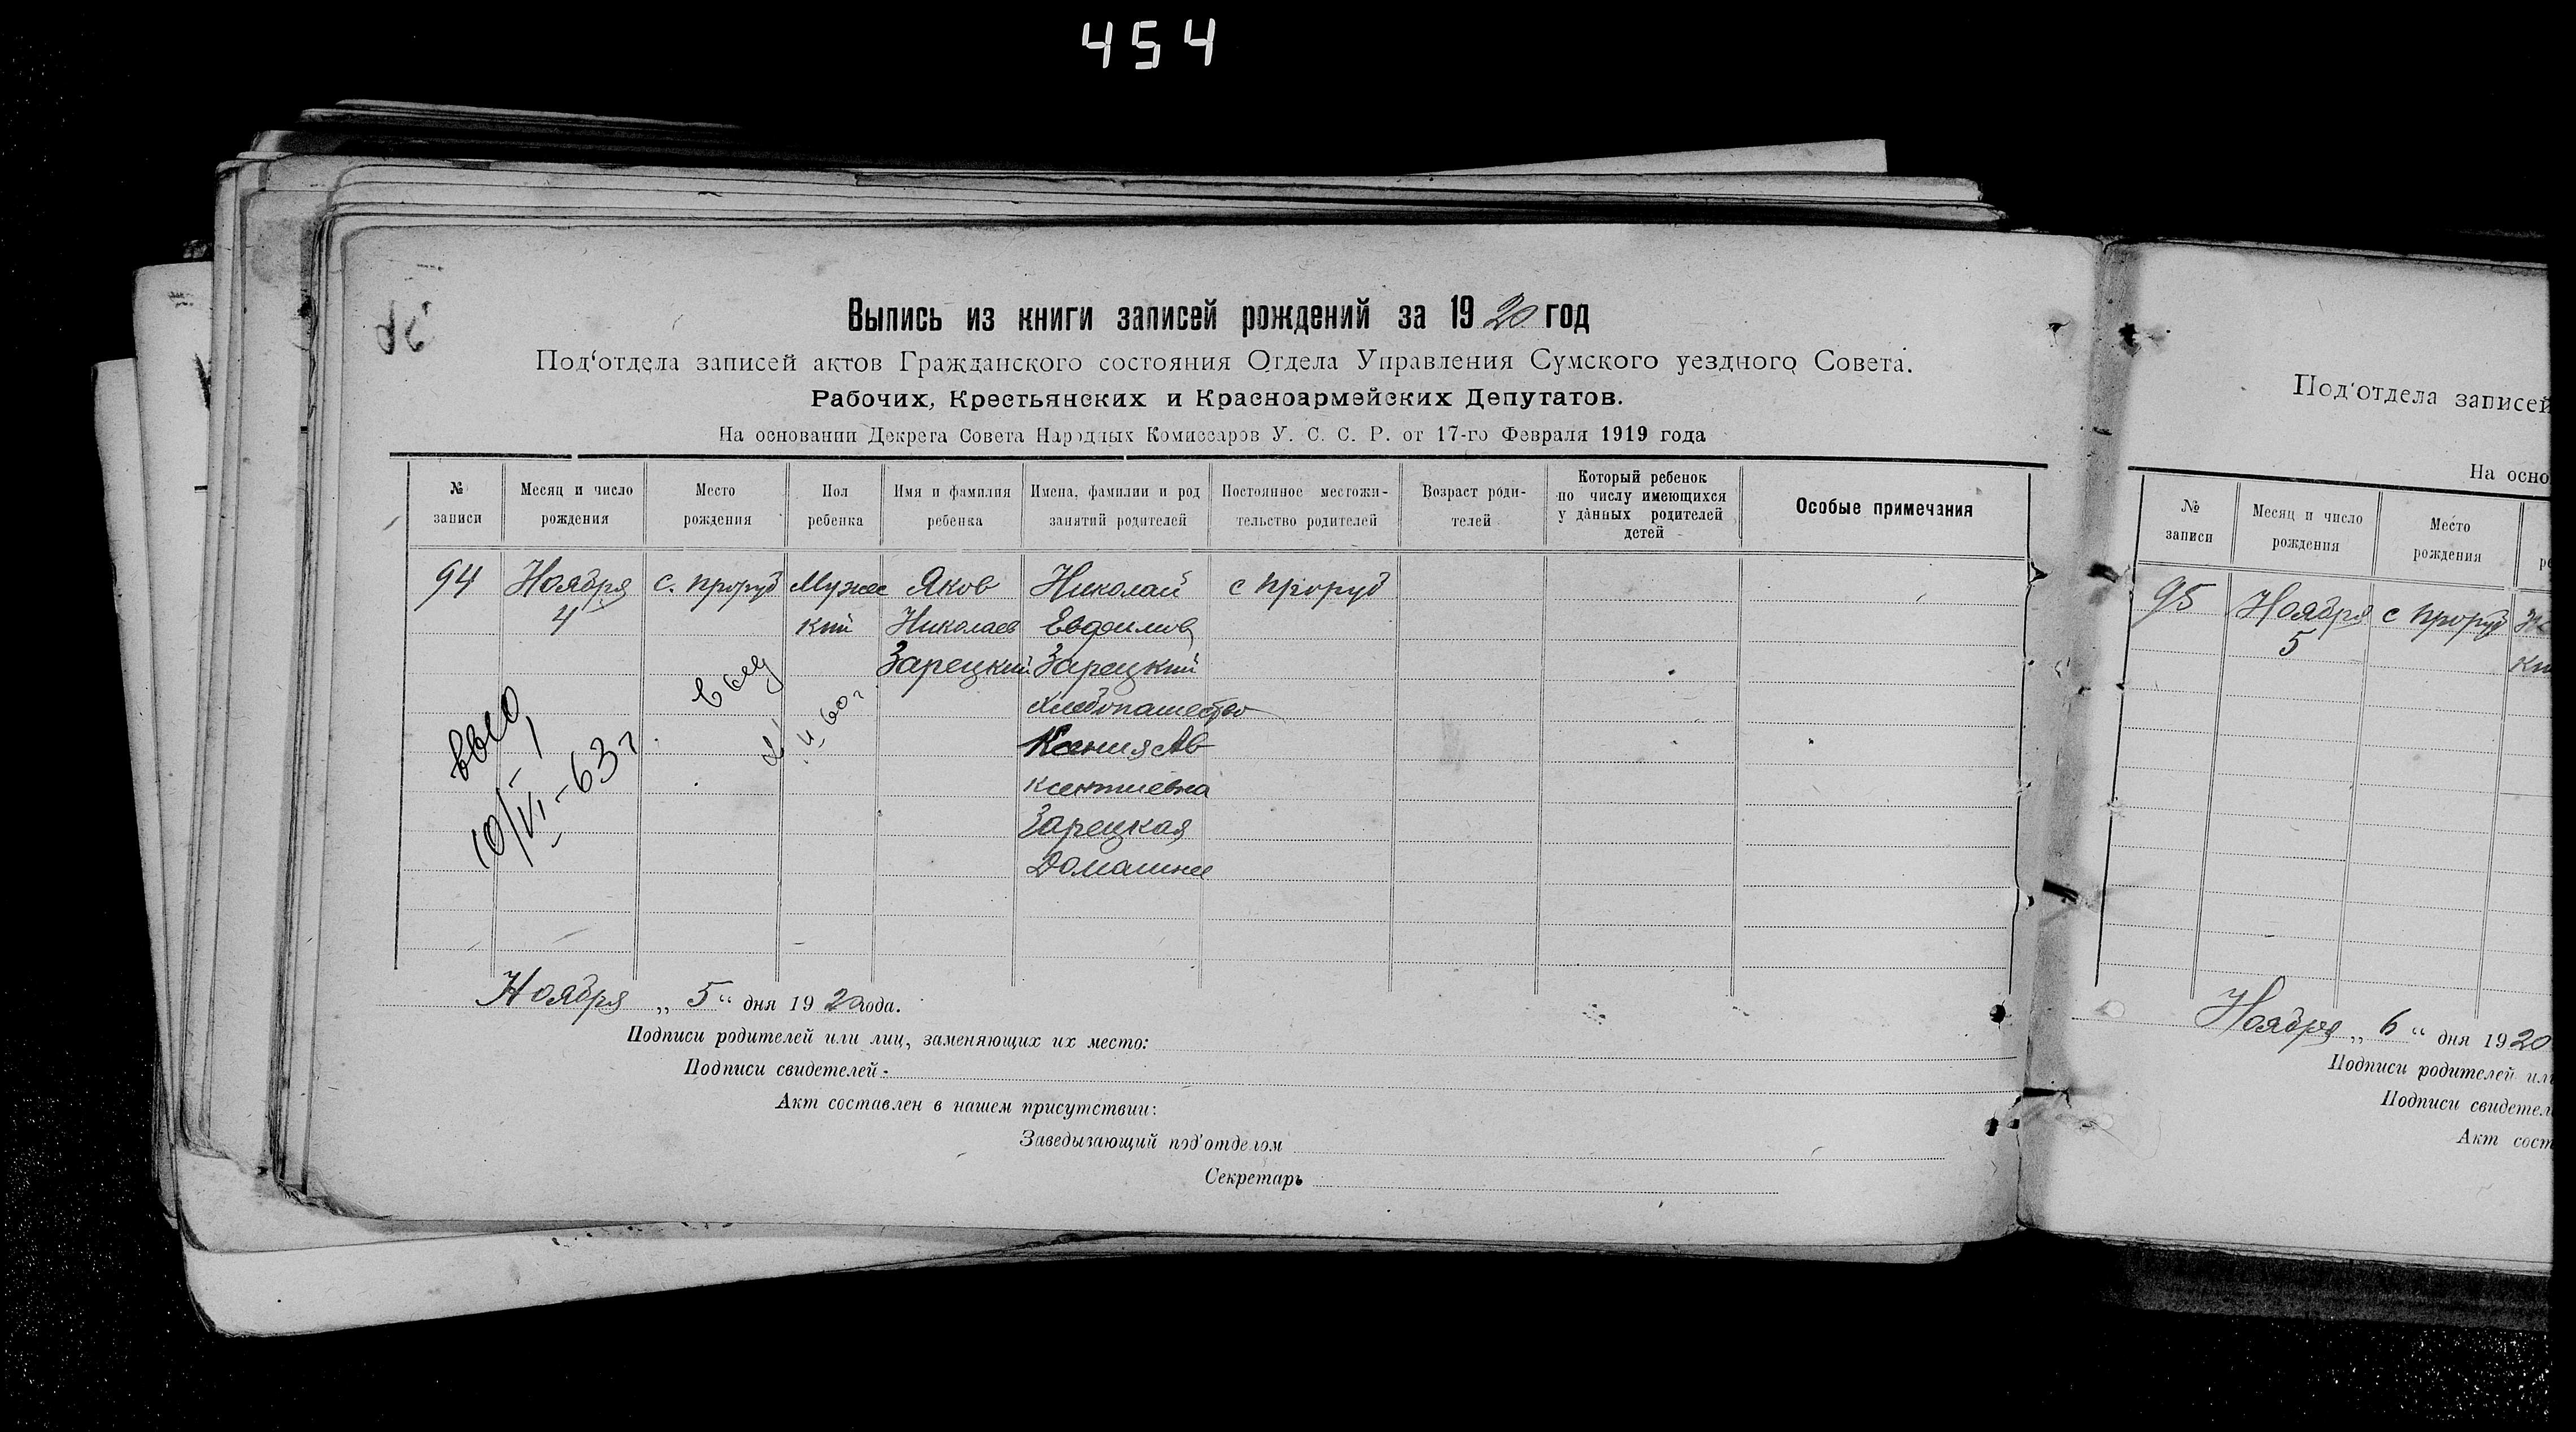 454
Выпись из книги записей рождений за 1920 год
Под'отдела записей актов Гражданского состояния Отдела Управления Сумского уездного Совета.
Рабочих, Крестьянских и Красноармейских Депутатов.
На основании Декрета Совета Народных Комиссаров У. С. С. Р. от 17-го Февраля 1919 года
№ записи
Месяц и число рождения
Место рождения
Пол ребенка
Имя и фамилия ребенка
Имена, фамилии и род занятий родителей
Постоянное местожительство родителей
Возраст родителей
Который ребенок по числу имеющихся у данных родителей детей
Особые примечания
94 Ноября с. Проруб Мужес Яков Николай с Проруб
4 кий Николаев Евфимов
Зарецкий Зарецкий
хлебопашество
Ксения Ав
ксентиевна
Зарецкая
Домашнее
10/VI-63г
60г
Ноября „5“ дня 1920 года.
Подписи родителей или лиц, заменяющих их место:
Подписи свидетелей:
Акт составлен в нашем присутствии:
Заведывающий под'отделом
Секретарь
Под'отдела записей
На осно
№ записи
Месяц и число рождения
Место рождения
95 Ноября с Проруб
5
Ноября „6“ дня 1920
Подписи родителей или
Подписи свидетел
Акт сост